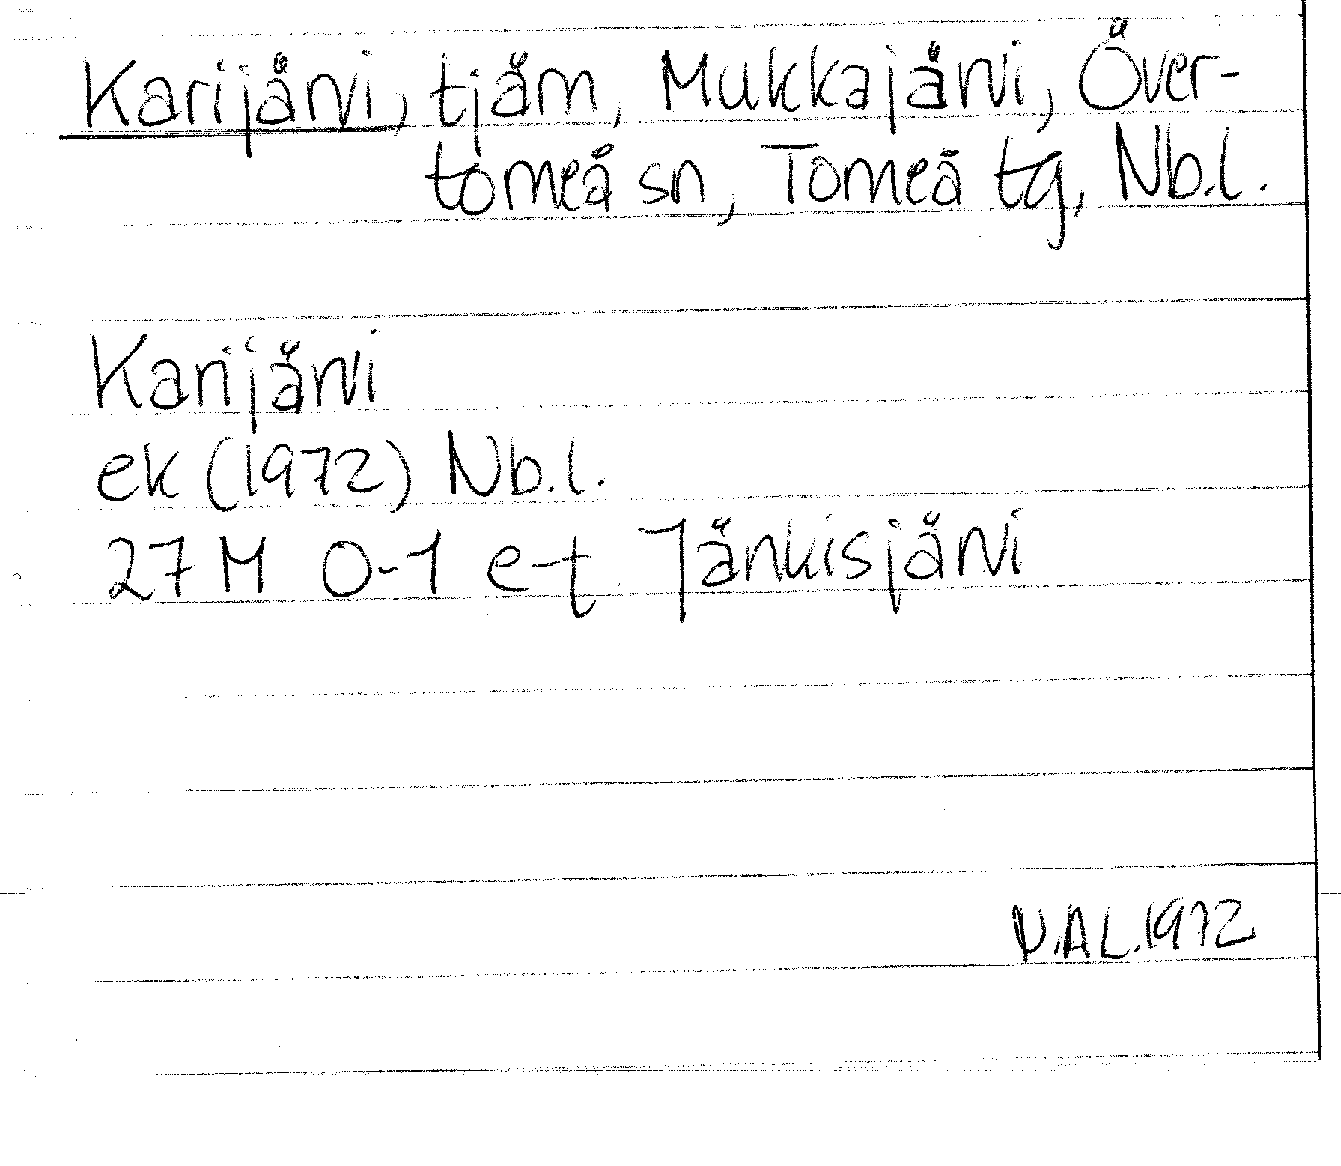 Karijärvi, tjärn, Mukkajärvi, Över-
torneå sn, Torneå tg, Nb.l.
Karijärvi
ek (1972) Nb.l.
27 M 0-1 e-f Jänkisjärvi
N.A.L. 1972